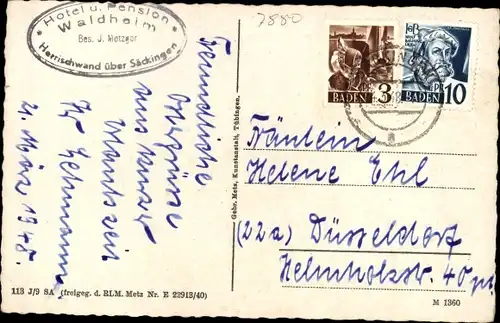 Hotel u. Pension
Waldheim
Bes. J. Metzger
Herrischwand über Säckingen
7880
3
BADEN
BADEN
10
Freundliche
aus kurzer
Urlaubszeit
Ihr Lehmann.
2. März 1948.
Gebr. Metz, Kunstanstalt, Tübingen.
Fräulein
Helene Ehl
(22a) Düsseldorf
Helmholzstr. 40
113 J/9 SA (freigeg. d. RLM. Metz Nr. E 22913/40)
M 1360